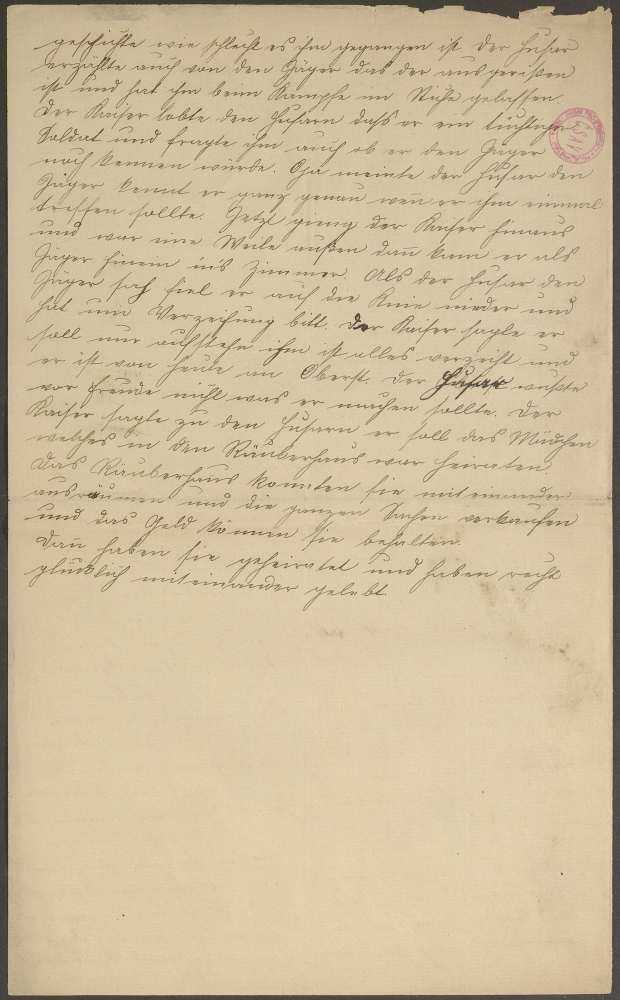 geschichte wie schlecht es ihm gegangen ist. Der Husar
erzählte auch von den Jäger das der ausgerißen
ist und hat ihm beim Kampfe im Stiche gelassen.
Der Kaiser lobte den Husarn dass er ein tüchtiger
Soldat und fragte ihm auch ob er den Jäger
noch kennen würde. Oja meinte der Husar den
Jäger kennt er ganz genau wen̄ er ihm einmal
treffen sollte. Jetzt gieng der Kaiser hinaus
und war eine Weile außen dan̄ kam er als
Jäger hinein ins Zimmer. Als der Husar den
Jäger sah fiel er auf die Knie nieder und
hat um Verzeihung bitt. Der Kaiser sagte er
soll nur aufstehn ihm ist alles verzeiht und
er ist von heute an Oberst. Der Husar wußte
vor Freude nicht was er machen sollte. Der
Kaiser sagte zu den Husarn er soll das Mädchen
welches in den Räuberhaus war heiraten.
Das Räuberhaus konnten sie miteinander
ausräumen und die ganzen Sachen verkaufen
und das Geld können sie behalten.
Dan̄ haben sie geheiratet und haben recht
glücklich miteinander gelebt